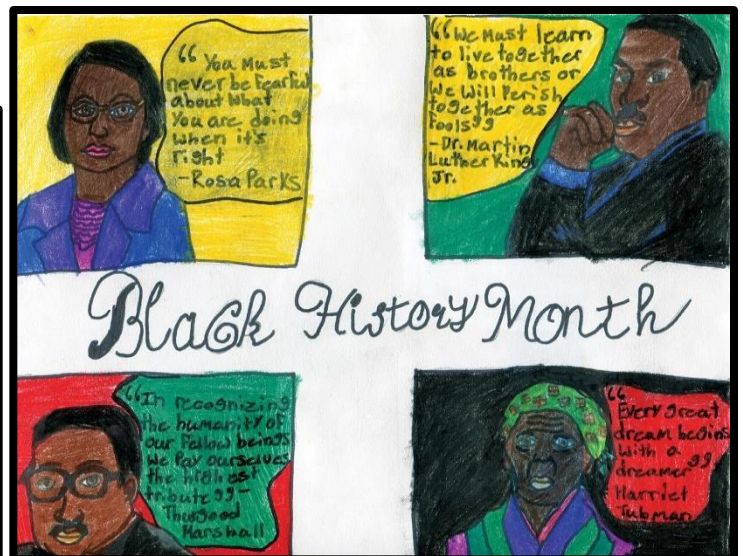 “ You Must
never be Fearful
about what
You are doing
when it's
right
-Rosa Parks
“We Must learn
to live together
as brothers or
We Will Perish
together as
Fools”
-Dr. Martin
Luther King
Jr.
Black History Month
“In recognizing
the humanity of
our Fellow beings
We Pay ourselves
the highest
tribute” -
Thurgood
Marshall
“
Every great
dream begins
With a
dreamer”
Harriet
Tubman